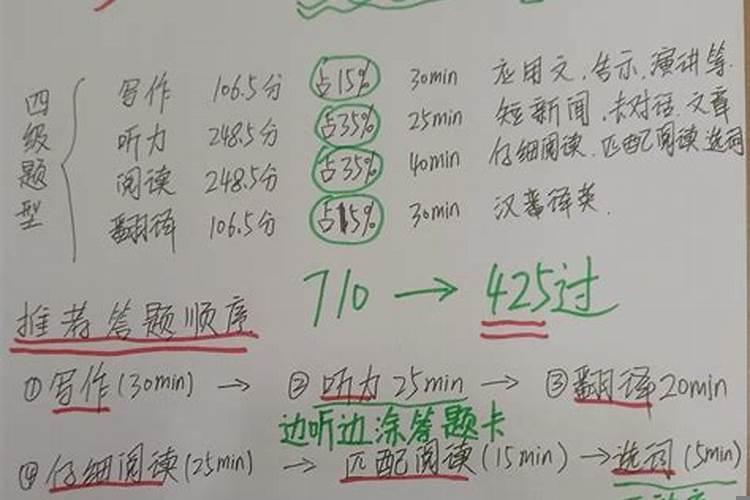 四级题型
写作 106.5分 占15% 30min 应用文、告示、演讲等.
听力 248.5分 占35% 25min 短新闻、长对话、文章
阅读 248.5分 占35% 40min 仔细阅读、匹配阅读、选词
翻译 106.5分 占15% 30min 汉翻译英.
710 → 425过
推荐答题顺序
①写作(30min) → ②听力25min → ③翻译20min
边听边涂答题卡
④仔细阅读(25min) → 匹配阅读(15min) → 选词(5min)